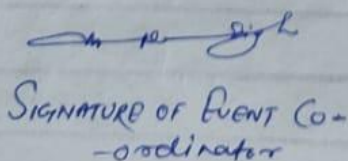 SIGNATURE OF EVENT CO-
-oordinator